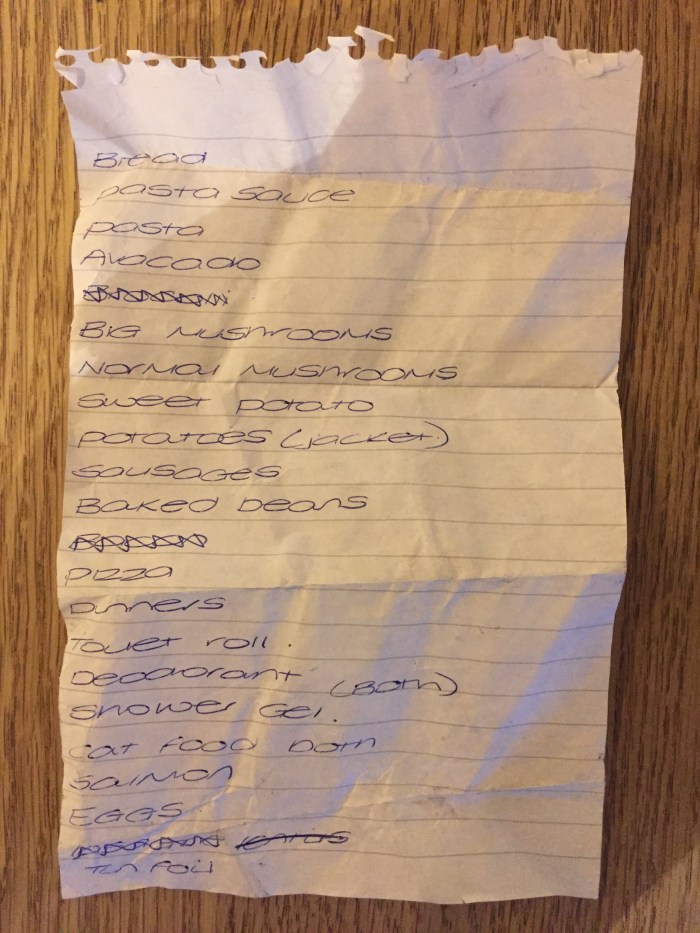 Bread
pasta sauce
pasta
Avocado
BIG MUSHROOMS
NORMAL MUSHROOMS
sweet potato
potatoes (jacket)
sausages
Baked beans
pizza
Dinners
Toilet roll.
Deodorant
(Both)
Shower Gel.
cat food both
salmon
EGGS
Tin foil